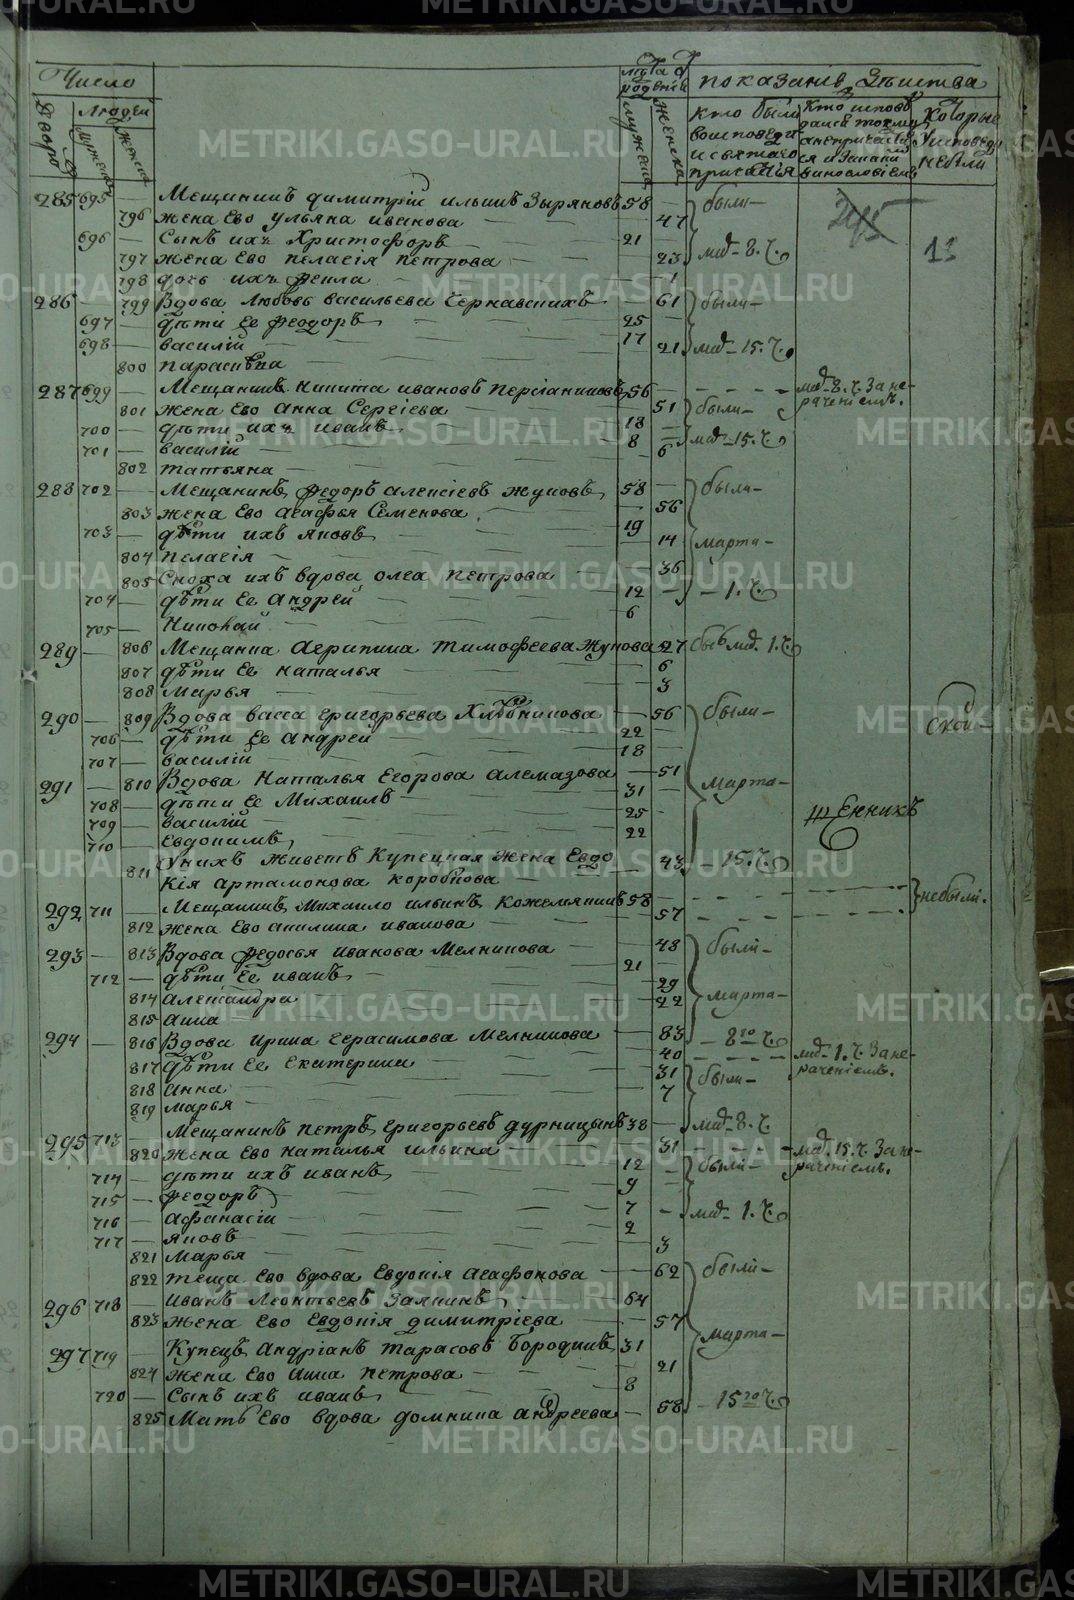 Число
Лѣта о
рожденіе
показаніе дѣйства
Дворо
Людей
мужеска
женска
мужеска
женска
Кто были
воисповеди
и святаго
причастія
Которые
уисповеди
небыли
285 695 — Мещанинъ димитрій ильинъ Зыряновъ 58 — были —
796 жена Ево ульяна иванова — 47
696 — Сынъ ихъ Христофоръ — 21
13
797 жена Ево пелагія петрова — 23 мар. 8. ч.
798 дочь ихъ Фекла — 1
286 — 799 Вдова Любовь васильева Чернавскихъ — 61 были —
697 — дѣти Ее Феодоръ — 25
698 — василій — 17
21 мар. 15. ч.
800 параскева
287 699 — Мещанинъ Никита ивановъ персіаниновъ 56 — мар. 8. ч. За не-
раченіемъ.
801 жена Ево Анна Сергіева — 51 были —
700 — дѣти ихъ иванъ — 18
701 — василій — 8 мар. 15. ч.
6
802 татьяна —
288 702 — Мещанинъ Федоръ алексіевъ жуковъ 58 — были —
803 жена Ево агафья Семенова — 56
703 — дѣти ихъ яковъ — 19
14 марта —
804 пелагія —
805 Сноха ихъ вдова олга петрова — 36
704 — дѣти Ее Андрей — 12 — 1. ч.
6
705 — Николай —
289 — 806 Мещанка Агрипина тимофеева жукова 27 быв. мар. 1. ч.
807 дѣти Ее наталья — 6
808 марья — 3
290 — 809 Вдова васса григорьева Хлѣбникова — 56 были —
706 — дѣти Ее андрей — 22
707 — василій — 18
ской
291 — 810 Вдова Наталья Егорова алемазова — 51 марта —
708 — дѣти Ее Михаилъ — 31
709 — василій — 25
710 — Евдокимъ — 22
щЕнникъ
811 Униxъ живетъ Купецкая жена Евдо
кія артамонова коробкова — 43 — 15. ч.
292 711 — Мещанинъ Михайло ильинъ кожемякинъ 58 — небыли.
812 жена Ево акилина иванова — 57
293 — 813 Вдова федосья иванова Мелникова — 48 были —
712 — дѣти Ее иванъ — 21
29
814 александра — 22 марта —
815 анна —
294 — 816 Вдова ирина герасимова Мелникова — 83 — 8го ч.
817 дѣти Ее Екатерина — 40 мар. 1. ч. За не-
раченіемъ.
818 анна — 31 были —
819 марья — 7
295 713 — Мещанинъ петръ григорьевъ дурницынъ 38 — мар. 8. ч.
820 жена Ево наталья ильина — 31 мар. 15. ч. За не-
раченіемъ.
714 — дѣти ихъ иванъ — 12 были —
715 — феодоръ — 9
716 — афанасій — 7 мар. 1. ч.
717 — яковъ — 2
821 марья — 3
822 теща Ево вдова Евдокія агафонова — 62 были —
296 718 — иванъ Леонтьевъ Заякинъ — 64
823 жена Ево Евдокія димитріева — 57 марта —
297 719 — Купецъ Андріанъ тарасовъ бородинъ 31
824 жена Ево Анна петрова — 21
720 — Сынъ ихъ иванъ — 8
825 мать Ево вдова домнина андреева — 58 — 15го ч.